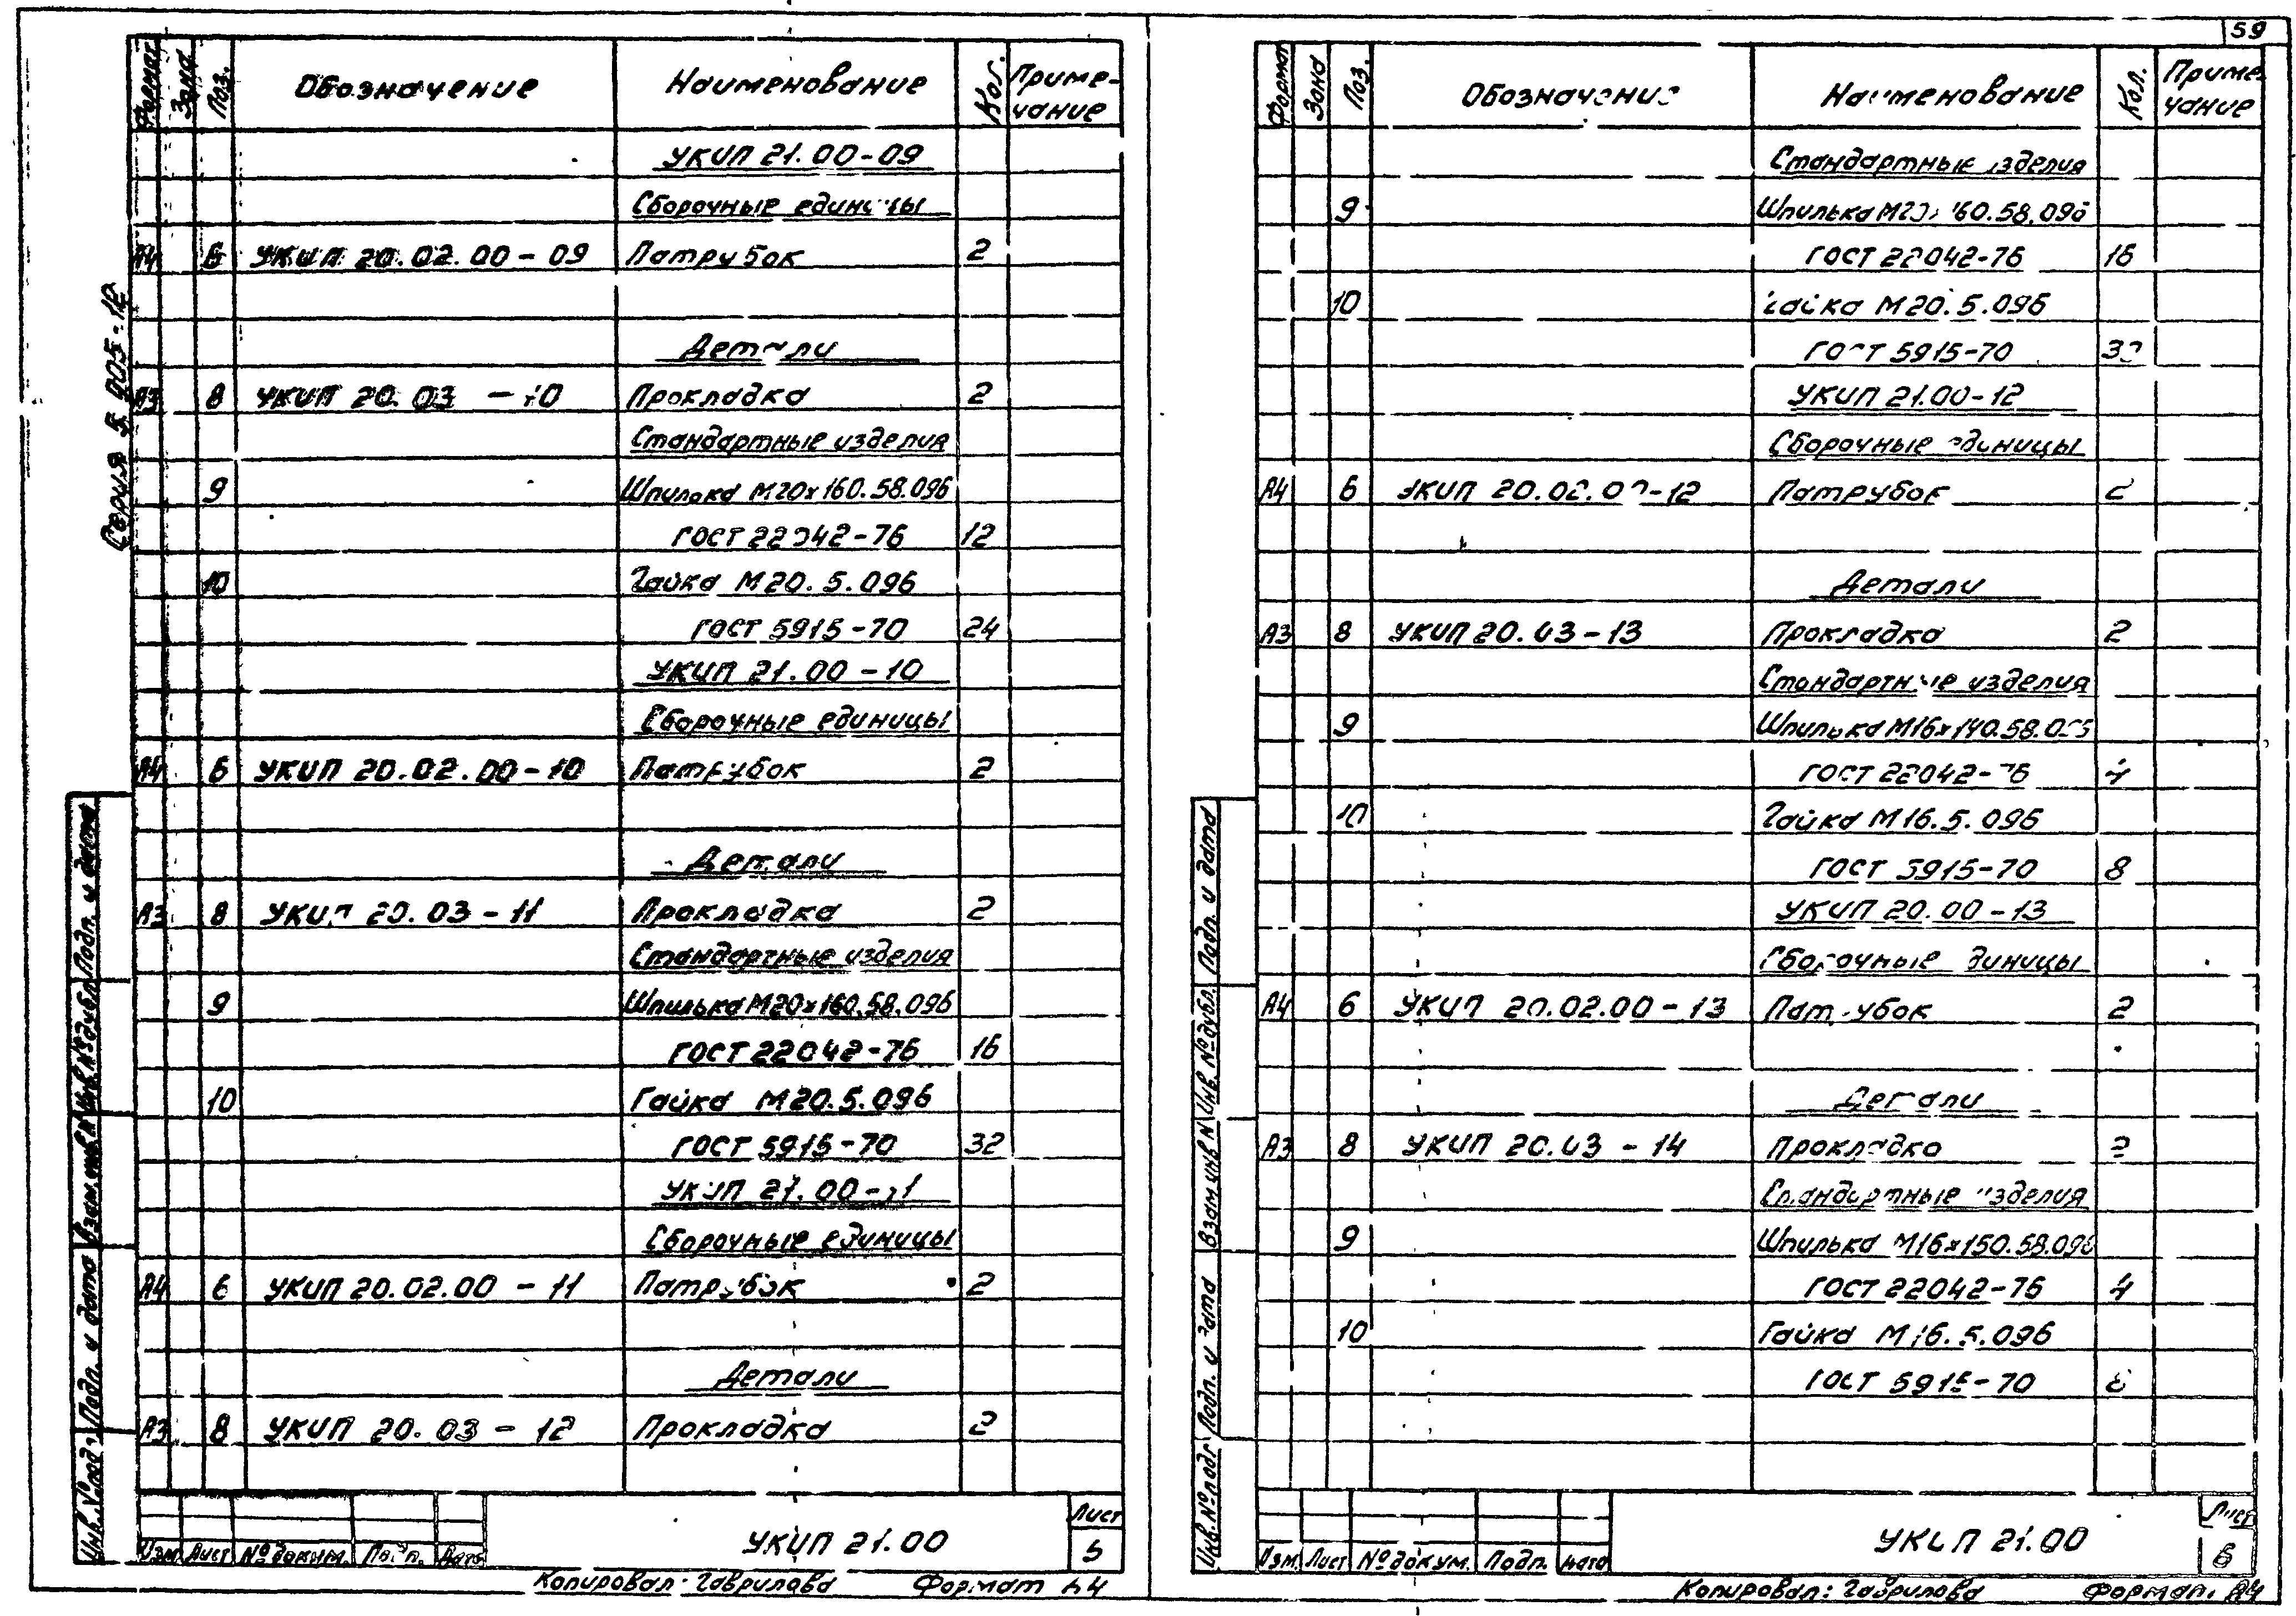 59
Серия 5.905-12
Формат Зона Поз. Обозначение Наименование Кол. Приме-
чание
УКИП 21.00-09
Сборочные единицы
А4 6 УКИП 20.02.00-09 Патрубок 2
Детали
А3 8 УКИП 20.03 -10 Прокладка 2
Стандартные изделия
9 Шпилька М20х160.58.096
ГОСТ 22042-76 12
10 Гайка М20.5.096
ГОСТ 5915-70 24
УКИП 21.00-10
Сборочные единицы
А4 6 УКИП 20.02.00-10 Патрубок 2
Детали
А3 8 УКИП 20.03-11 Прокладка 2
Стандартные изделия
9 Шпилька М20х160.58.096
ГОСТ 22042-76 16
10 Гайка М20.5.096
ГОСТ 5915-70 32
УКИП 21.00-11
Сборочные единицы
А4 6 УКИП 20.02.00-11 Патрубок 2
Детали
А3 8 УКИП 20.03-12 Прокладка 2
Инв.№подл. Подп. и дата Взам.инв.№ Инв.№дубл. Подп. и дата
Изм Лист №докум. Подп. Дата
УКИП 21.00
Лист
5
Копировал: Гаврилова Формат А4
Формат Зона Поз. Обозначение Наименование Кол. Приме-
чание
Стандартные изделия
9 Шпилька М20х160.58.096
ГОСТ 22042-76 16
10 Гайка М20.5.096
ГОСТ 5915-70 32
УКИП 21.00-12
Сборочные единицы
А4 6 УКИП 20.02.00-12 Патрубок 2
Детали
А3 8 УКИП 20.03-13 Прокладка 2
Стандартные изделия
9 Шпилька М16х140.58.096
ГОСТ 22042-76 4
10 Гайка М16.5.096
ГОСТ 5915-70 8
УКИП 20.00-13
Сборочные единицы
А4 6 УКИП 20.02.00-13 Патрубок 2
Детали
А3 8 УКИП 20.03-14 Прокладка 2
Стандартные изделия
9 Шпилька М16х150.58.096
ГОСТ 22042-76 4
10 Гайка М16.5.096
ГОСТ 5915-70 8
Инв.№подл. Подп. и дата Взам.инв.№ Инв.№дубл. Подп. и дата
Изм. Лист №докум. Подп. Дата
УКИП 21.00
Лист
6
Копировал: Гаврилова Формат А4